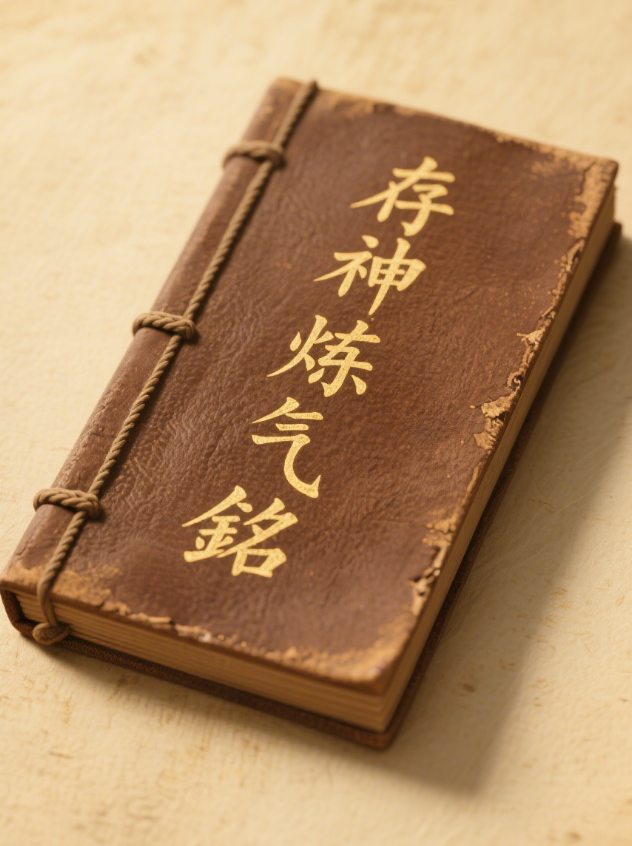 存神炼气銘